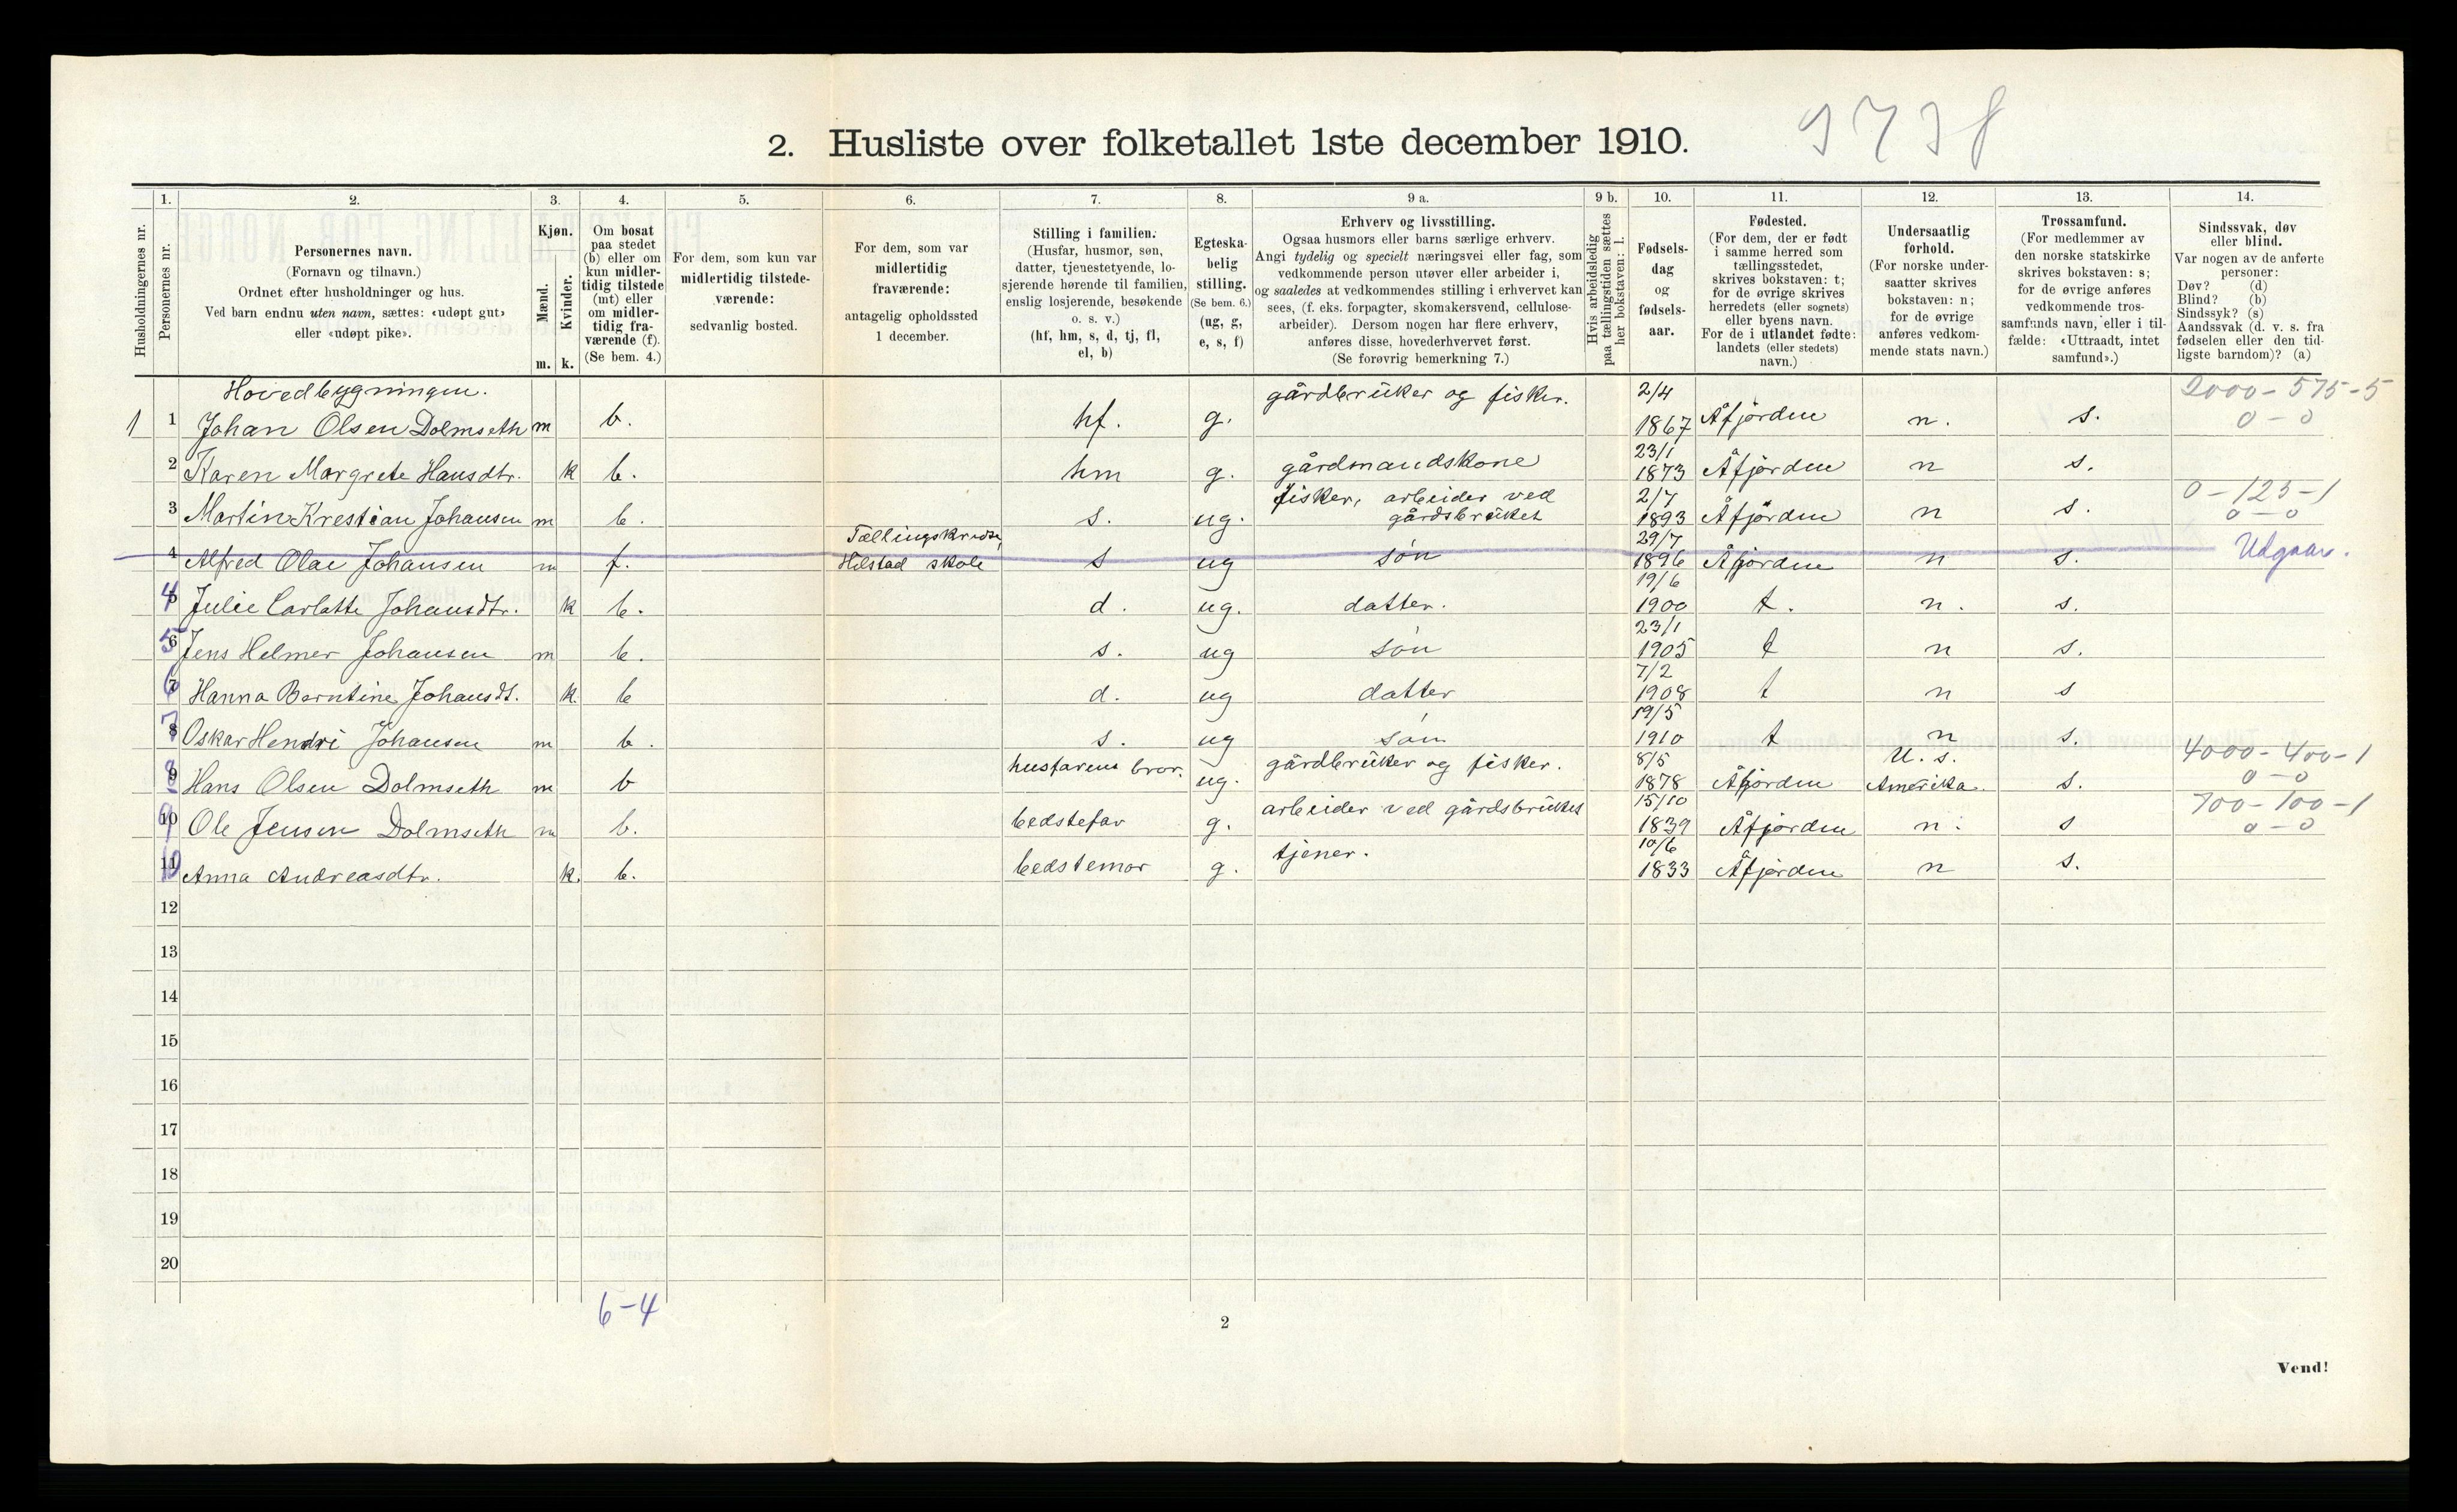 9738
2. Husliste over folketallet 1ste december 1910.
Husholdningernes nr.
1.
Personernes nr.
2.
Personernes navn.
(Fornavn og tilnavn.)
Ordnet efter husholdninger og hus.
Ved barn endnu uten navn, sættes: «udøpt gut»
eller «udøpt pike».
3.
Kjøn.
Mænd.
Kvinder.
m. k.
4.
Om bosat
paa stedet
(b) eller om
kun midler-
tidig tilstede
(mt) eller
om midler-
tidig fra-
værende (f).
(Se bem. 4.)
5.
For dem, som kun var
midlertidig tilstede-
værende:
sedvanlig bosted.
6.
For dem, som var
midlertidig
fraværende:
antagelig opholdssted
1 december.
7.
Stilling i familien.
(Husfar, husmor, søn,
datter, tjenestetyende, lo-
sjerende hørende til familien,
enslig losjerende, besøkende
o. s. v.)
(hf, hm, s, d, tj, fl,
el, b)
8.
Egteska-
belig
stilling.
(Se bem. 6.)
(ug, g,
e, s, f)
9 a.
Erhverv og livsstilling.
Ogsaa husmors eller barns særlige erhverv.
Angi tydelig og specielt næringsvei eller fag, som
vedkommende person utøver eller arbeider i,
og saaledes at vedkommendes stilling i erhvervet kan
sees, (f. eks. forpagter, skomakersvend, cellulose-
arbeider). Dersom nogen har flere erhverv,
anføres disse, hovederhvervet først.
(Se forøvrig bemerkning 7.)
9 b.
Hvis arbeidsledig
paa tællingstiden sættes
her bokstaven: l.
10.
Fødsels-
dag
og
fødsels-
aar.
11.
Fødested.
(For dem, der er født
i samme herred som
tællingsstedet,
skrives bokstaven: t;
for de øvrige skrives
herredets (eller sognets)
eller byens navn.
For de i utlandet fødte:
landets (eller stedets)
navn.)
12.
Undersaatlig
forhold.
(For norske under-
saatter skrives
bokstaven: n;
for de øvrige
anføres vedkom-
mende stats navn.)
13.
Trossamfund.
(For medlemmer av
den norske statskirke
skrives bokstaven: s;
for de øvrige anføres
vedkommende tros-
samfunds navn, eller i til-
fælde: «Uttraadt, intet
samfund».)
14.
Sindssvak, døv
eller blind.
Var nogen av de anførte
personer:
Døv? (d)
Blind? (b)
Sindssyk? (s)
Aandssvak (d. v. s. fra
fødselen eller den tid-
ligste barndom)? (a)
Hovedbygningen. gårdbrüker og fisker. 2/4 2000-575-5
1 1 Johan Olsen Dolmseth m b. hf. g. 1867 Åfjorden n. s. 0-0
23/1
2 Karen Margrete Hansdtr. k b. hm g. gårdmandskone 1873 Åfjorden n s.
fisker, arbeider ved 2/7 0-125-1
3 Martin Krestian Johansen m b. s. ug. gårdsbrüket 1893 Åfjorden n s. 0-0
Tællingskreds, 29/7
4 Alfred Olai Johansen m f. Hilstad skole s ug søn 1896 Åfjorden n s. Udgaar.
19/6
4 5 Julie Carlotte Johansdtr. k b. d. ug. datter. 1900 t. n. s.
23/1
5 6 Jens Helmer Johansen m b. s. ug søn 1905 t n s.
7/2
6 7 Hanna Berntine Johansdt. k. b d. ug datter 1908 t n s
19/5
7 8 Oskar Hendri Johansen m b. s. ug søn 1910 t n s.
husfarens bror. gårdbrüker og fisker. 8/5 U. s. 4000-400-1
8 9 Hans Olsen Dolmseth m b ug. 1878 Åfjorden Amerika. s. 0-0
bedstefar arbeider ved gårdsbrüket 15/10 700-100-1
9 10 Ole Jensen Dolmseth m b. g. 1839 Åfjorden n. s 0-0
tjener. 10/6
10 11 Anna Andreasdtr. k. b. bedstemor g. 1833 Åfjorden n s.
12
13
14
15
16
17
18
19
20
6-4
2
Vend!